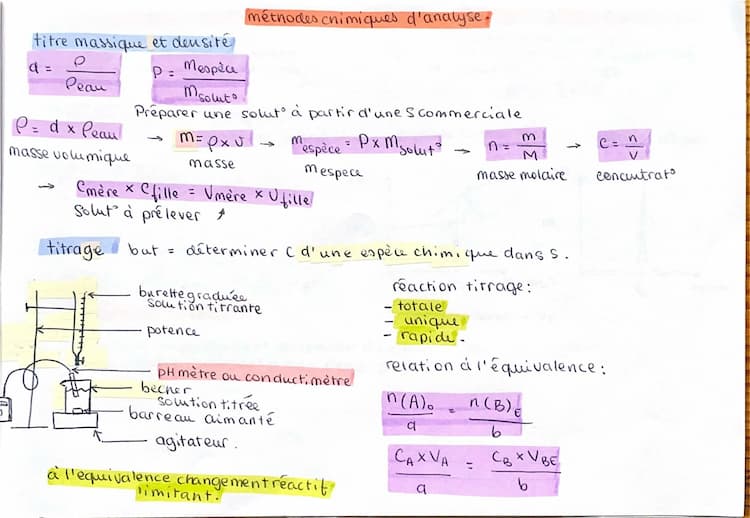 méthodes chimiques d'analyse.
titre massique et densité
d = ρ / ρeau
P = mespèce / msolut°
Préparer une solut° à partir d'une S commerciale
ρ = d x ρeau → m = ρ x v → mespèce = P x msolut° → n = m / M → c = n / V
masse volumique masse mespece masse molaire concentrat°
→ Cmère x Cfille = Vmère x Vfille
solut° à prélever ↗
titrage but = déterminer C d'une espèce chimique dans S.
burette graduée
solution titrante
potence
pH mètre ou conductimètre
becher
solution titrée
barreau aimanté
agitateur.
à l'equivalence changement réactif
limitant.
réaction titrage:
- totale
- unique
- rapide.
relation à l'équivalence:
n(A)₀ / a = n(B)E / b
CA x VA / a = CB x VBE / b